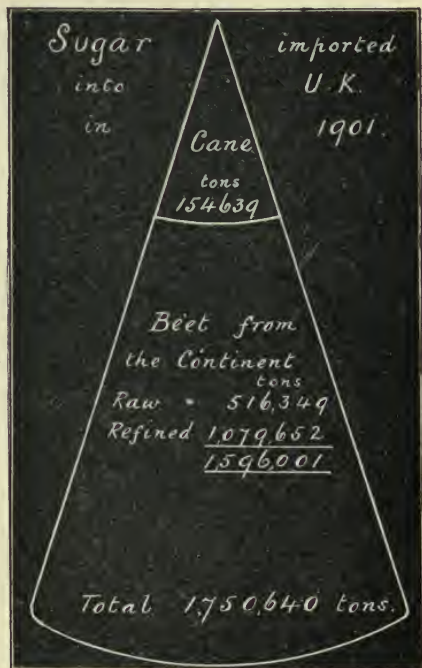 Sugar imported
into U. K.
in 1901.
Cane
tons
154639
Beet from
the Continent
tons
Raw " 516,349
Refined 1,079,652
1,596,001
Total 1,750,640 tons.